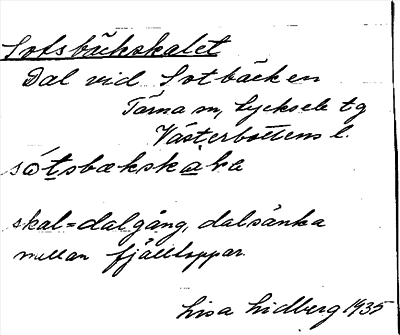 Sotsbäckskalet
Dal vid Sotbäcken
Tärna sn, Lycksele tg
Västerbottens l.
skal = dalgång, dalsänka
mellan fjälltoppar.
Lisa Lidberg 1935